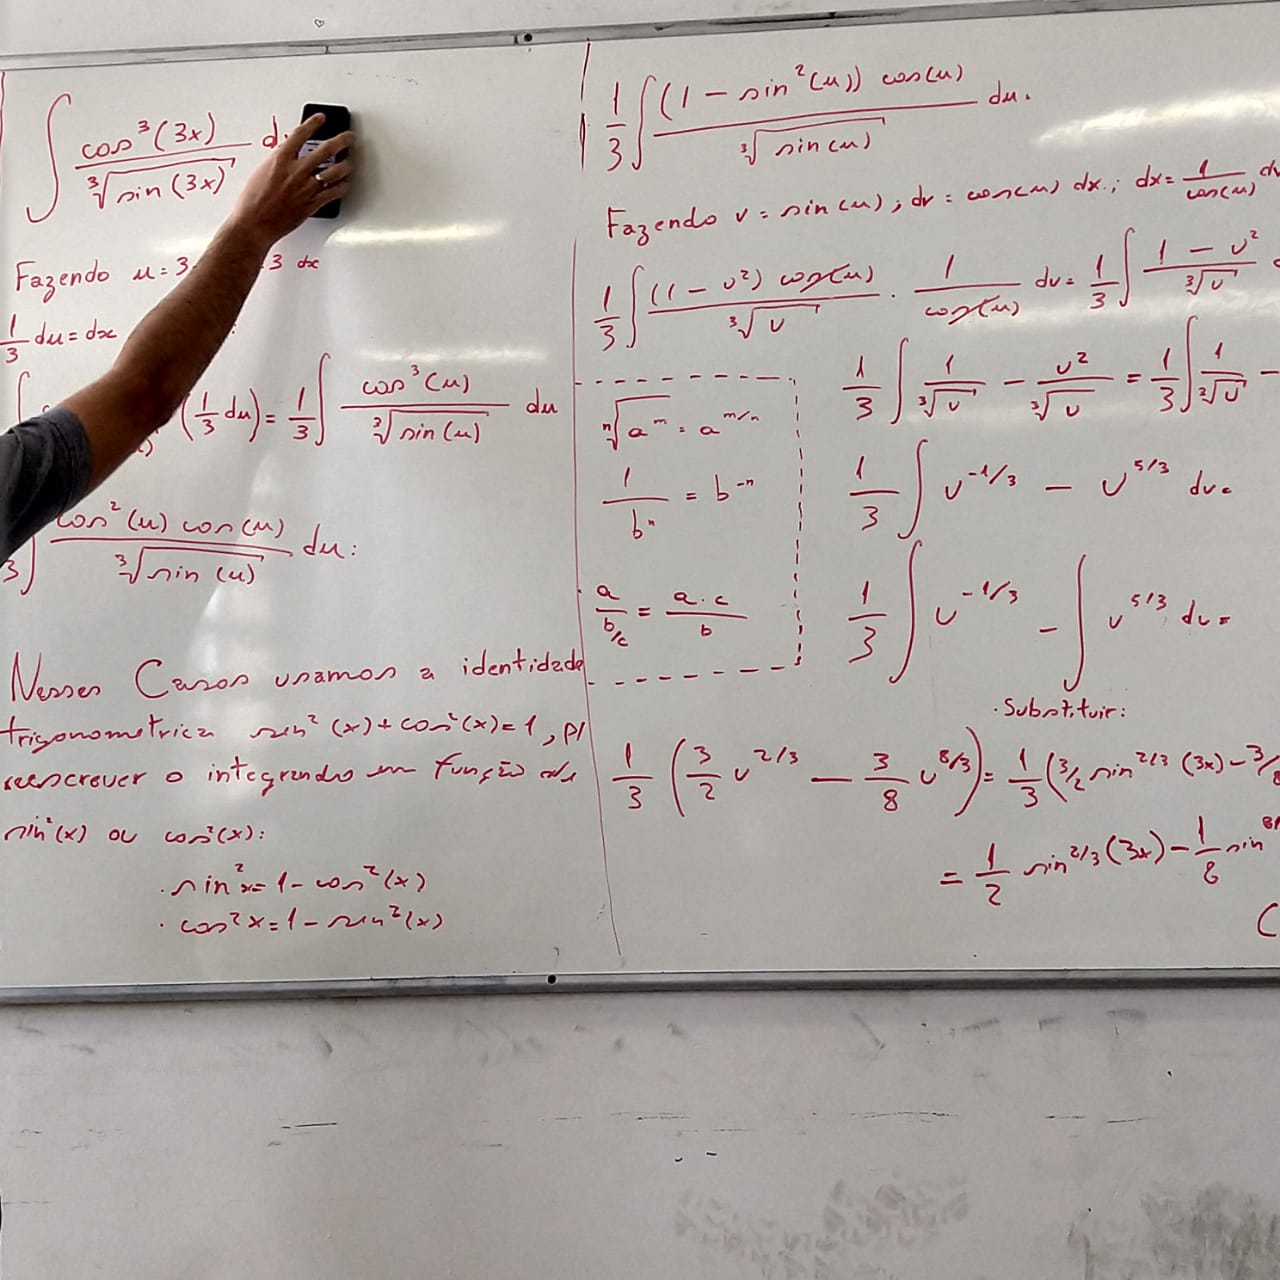 ∫ cos³(3x) / ∛sin(3x) d
Fazendo u = 3 3 dx
1/3 du = dx
(1/3 du) = 1/3 ∫ cos³(u) / ∛sin(u) du
3 ∫ cos²(u) cos(u) / ∛sin(u) du:
Nesses Casos usamos a identidade
trigonometrica sin²(x) + cos²(x) = 1, p/
reescrever o integrando em função de
sin²(x) ou cos²(x):
· sin²x = 1 - cos²(x)
· cos²x = 1 - sin²(x)
1/3 ∫ (1 - sin²(u)) cos(u) / ∛sin(u) du.
Fazendo v = sin(u); dv = cos(u) dx.; dx = 1/cos(u) dv
1/3 ∫ (1 - v²) cos(u) / ∛v · 1/cos(u) dv = 1/3 ∫ 1 - v² / ∛v
1/3 ∫ 1/∛v - v²/∛v = 1/3 ∫ 1/∛v -
ⁿ√aᵐ = a^m/n
1/bⁿ = b⁻ⁿ
a / b/c = a·c / b
1/3 ∫ v^-1/3 - v^5/3 dv =
1/3 ∫ v^-1/3 - ∫ v^5/3 dv =
· Substituir:
1/3 (3/2 v^2/3 - 3/8 v^8/3) = 1/3 (3/2 sin^2/3 (3x) - 3/8
= 1/2 sin^2/3 (3x) - 1/8 sin^8/